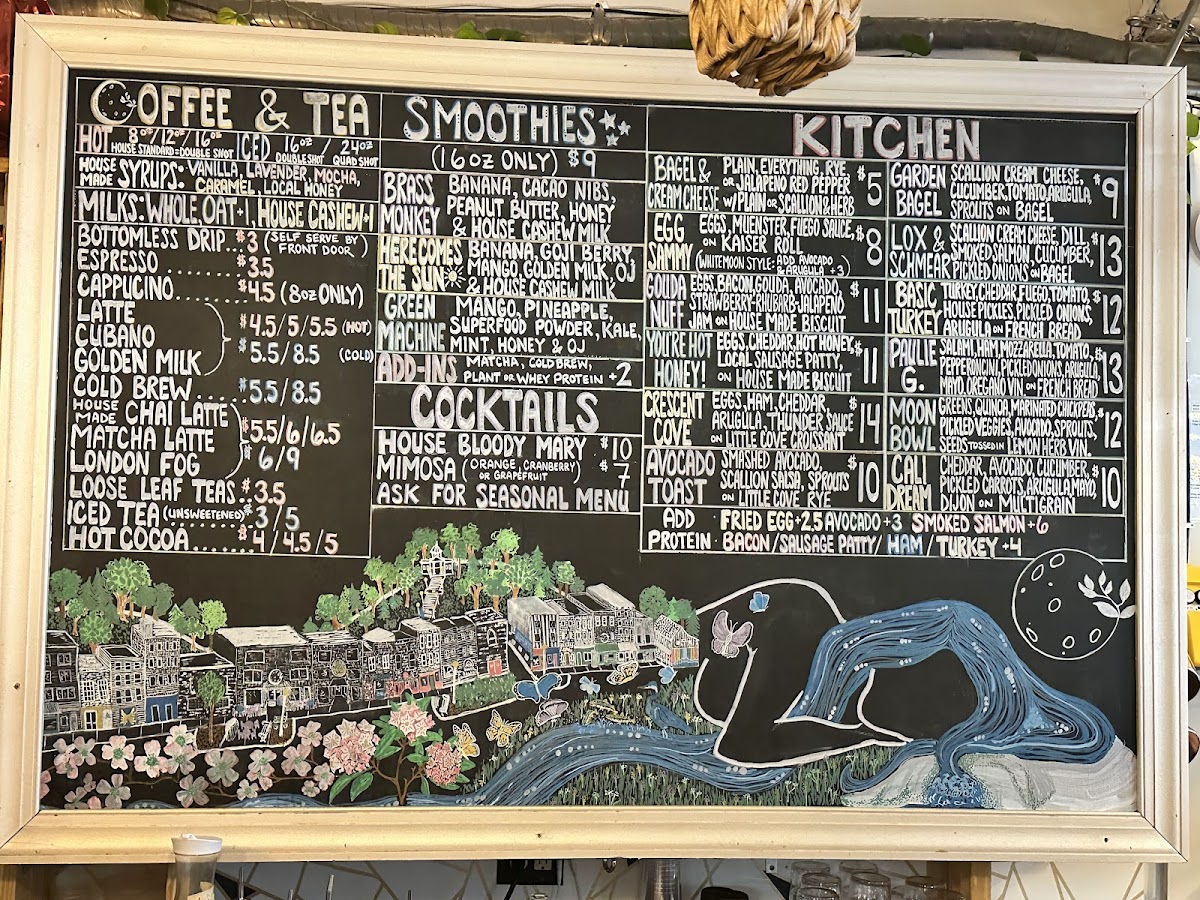 COFFEE & TEA
HOT 8oz/12oz/16oz ICED 16oz / 24oz
HOUSE STANDARD=DOUBLE SHOT DOUBLE SHOT QUAD SHOT
HOUSE MADE SYRUPS: VANILLA, LAVENDER, MOCHA,
CARAMEL, LOCAL HONEY
MILKS: WHOLE, OAT+1, HOUSE CASHEW+1
BOTTOMLESS DRIP...$3 (SELF SERVE BY
FRONT DOOR)
ESPRESSO ........$3.5
CAPPUCINO........$4.5 (8oz ONLY)
LATTE
CUBANO
GOLDEN MILK
$4.5/5/5.5 (HOT)
$5.5/8.5 (COLD)
COLD BREW ....$5.5/8.5
HOUSE MADE CHAI LATTE
MATCHA LATTE
LONDON FOG
$5.5/6/6.5
$6/9
LOOSE LEAF TEAS..$3.5
ICED TEA (UNSWEETENED)$3/5
HOT COCOA.......$4/4.5/5
SMOOTHIES
(16oz ONLY) $9
BRASS MONKEY
BANANA, CACAO NIBS,
PEANUT BUTTER, HONEY
& HOUSE CASHEW MILK
HERE COMES THE SUN
BANANA, GOJI BERRY,
MANGO, GOLDEN MILK, OJ
& HOUSE CASHEW MILK
GREEN MACHINE
MANGO, PINEAPPLE,
SUPERFOOD POWDER, KALE,
MINT, HONEY & OJ
ADD-INS
MATCHA, COLD BREW,
PLANT OR WHEY PROTEIN +2
COCKTAILS
HOUSE BLOODY MARY $10
MIMOSA (ORANGE, CRANBERRY $7
OR GRAPEFRUIT)
ASK FOR SEASONAL MENU
KITCHEN
BAGEL & CREAM CHEESE
PLAIN, EVERYTHING, RYE,
OR JALAPENO RED PEPPER $5
W/ PLAIN OR SCALLION & HERB
EGG SAMMY
EGGS, MUENSTER, FUEGO SAUCE,
ON KAISER ROLL $8
(WHITEMOON STYLE: ADD AVOCADO
& ARUGULA +3)
GOUDA NUFF
EGGS, BACON, GOUDA, AVOCADO,
STRAWBERRY-RHUBARB-JALAPENO $11
JAM ON HOUSE MADE BISCUIT
YOU'RE HOT HONEY!
EGGS, CHEDDAR, HOT HONEY,
LOCAL SAUSAGE PATTY, $11
ON HOUSE MADE BISCUIT
CRESCENT COVE
EGGS, HAM, CHEDDAR,
ARUGULA, THUNDER SAUCE $14
ON LITTLE COVE CROISSANT
AVOCADO TOAST
SMASHED AVOCADO,
SCALLION SALSA, SPROUTS $10
ON LITTLE COVE RYE
GARDEN BAGEL
SCALLION CREAM CHEESE,
CUCUMBER, TOMATO, ARUGULA, $9
SPROUTS ON BAGEL
LOX & SCHMEAR
SCALLION CREAM CHEESE, DILL,
SMOKED SALMON, CUCUMBER, $13
PICKLED ONIONS ON BAGEL
BASIC TURKEY
TURKEY, CHEDDAR, FUEGO, TOMATO,
HOUSE PICKLES, PICKLED ONIONS, $12
ARUGULA ON FRENCH BREAD
PAULIE G.
SALAMI, HAM, MOZZARELLA, TOMATO,
PEPPERONCINI, PICKLED ONIONS, ARUGULA, $13
MAYO, OREGANO VIN ON FRENCH BREAD
MOON BOWL
GREENS, QUINOA, MARINATED CHICKPEAS,
PICKLED VEGGIES, AVOCADO, SPROUTS, $12
SEEDS TOSSED IN LEMON HERB VIN.
CALI DREAM
CHEDDAR, AVOCADO, CUCUMBER,
PICKLED CARROTS, ARUGULA, MAYO, $10
DIJON ON MULTIGRAIN
ADD FRIED EGG+2.5 AVOCADO +3 SMOKED SALMON +6
PROTEIN BACON/SAUSAGE PATTY/ HAM / TURKEY +4